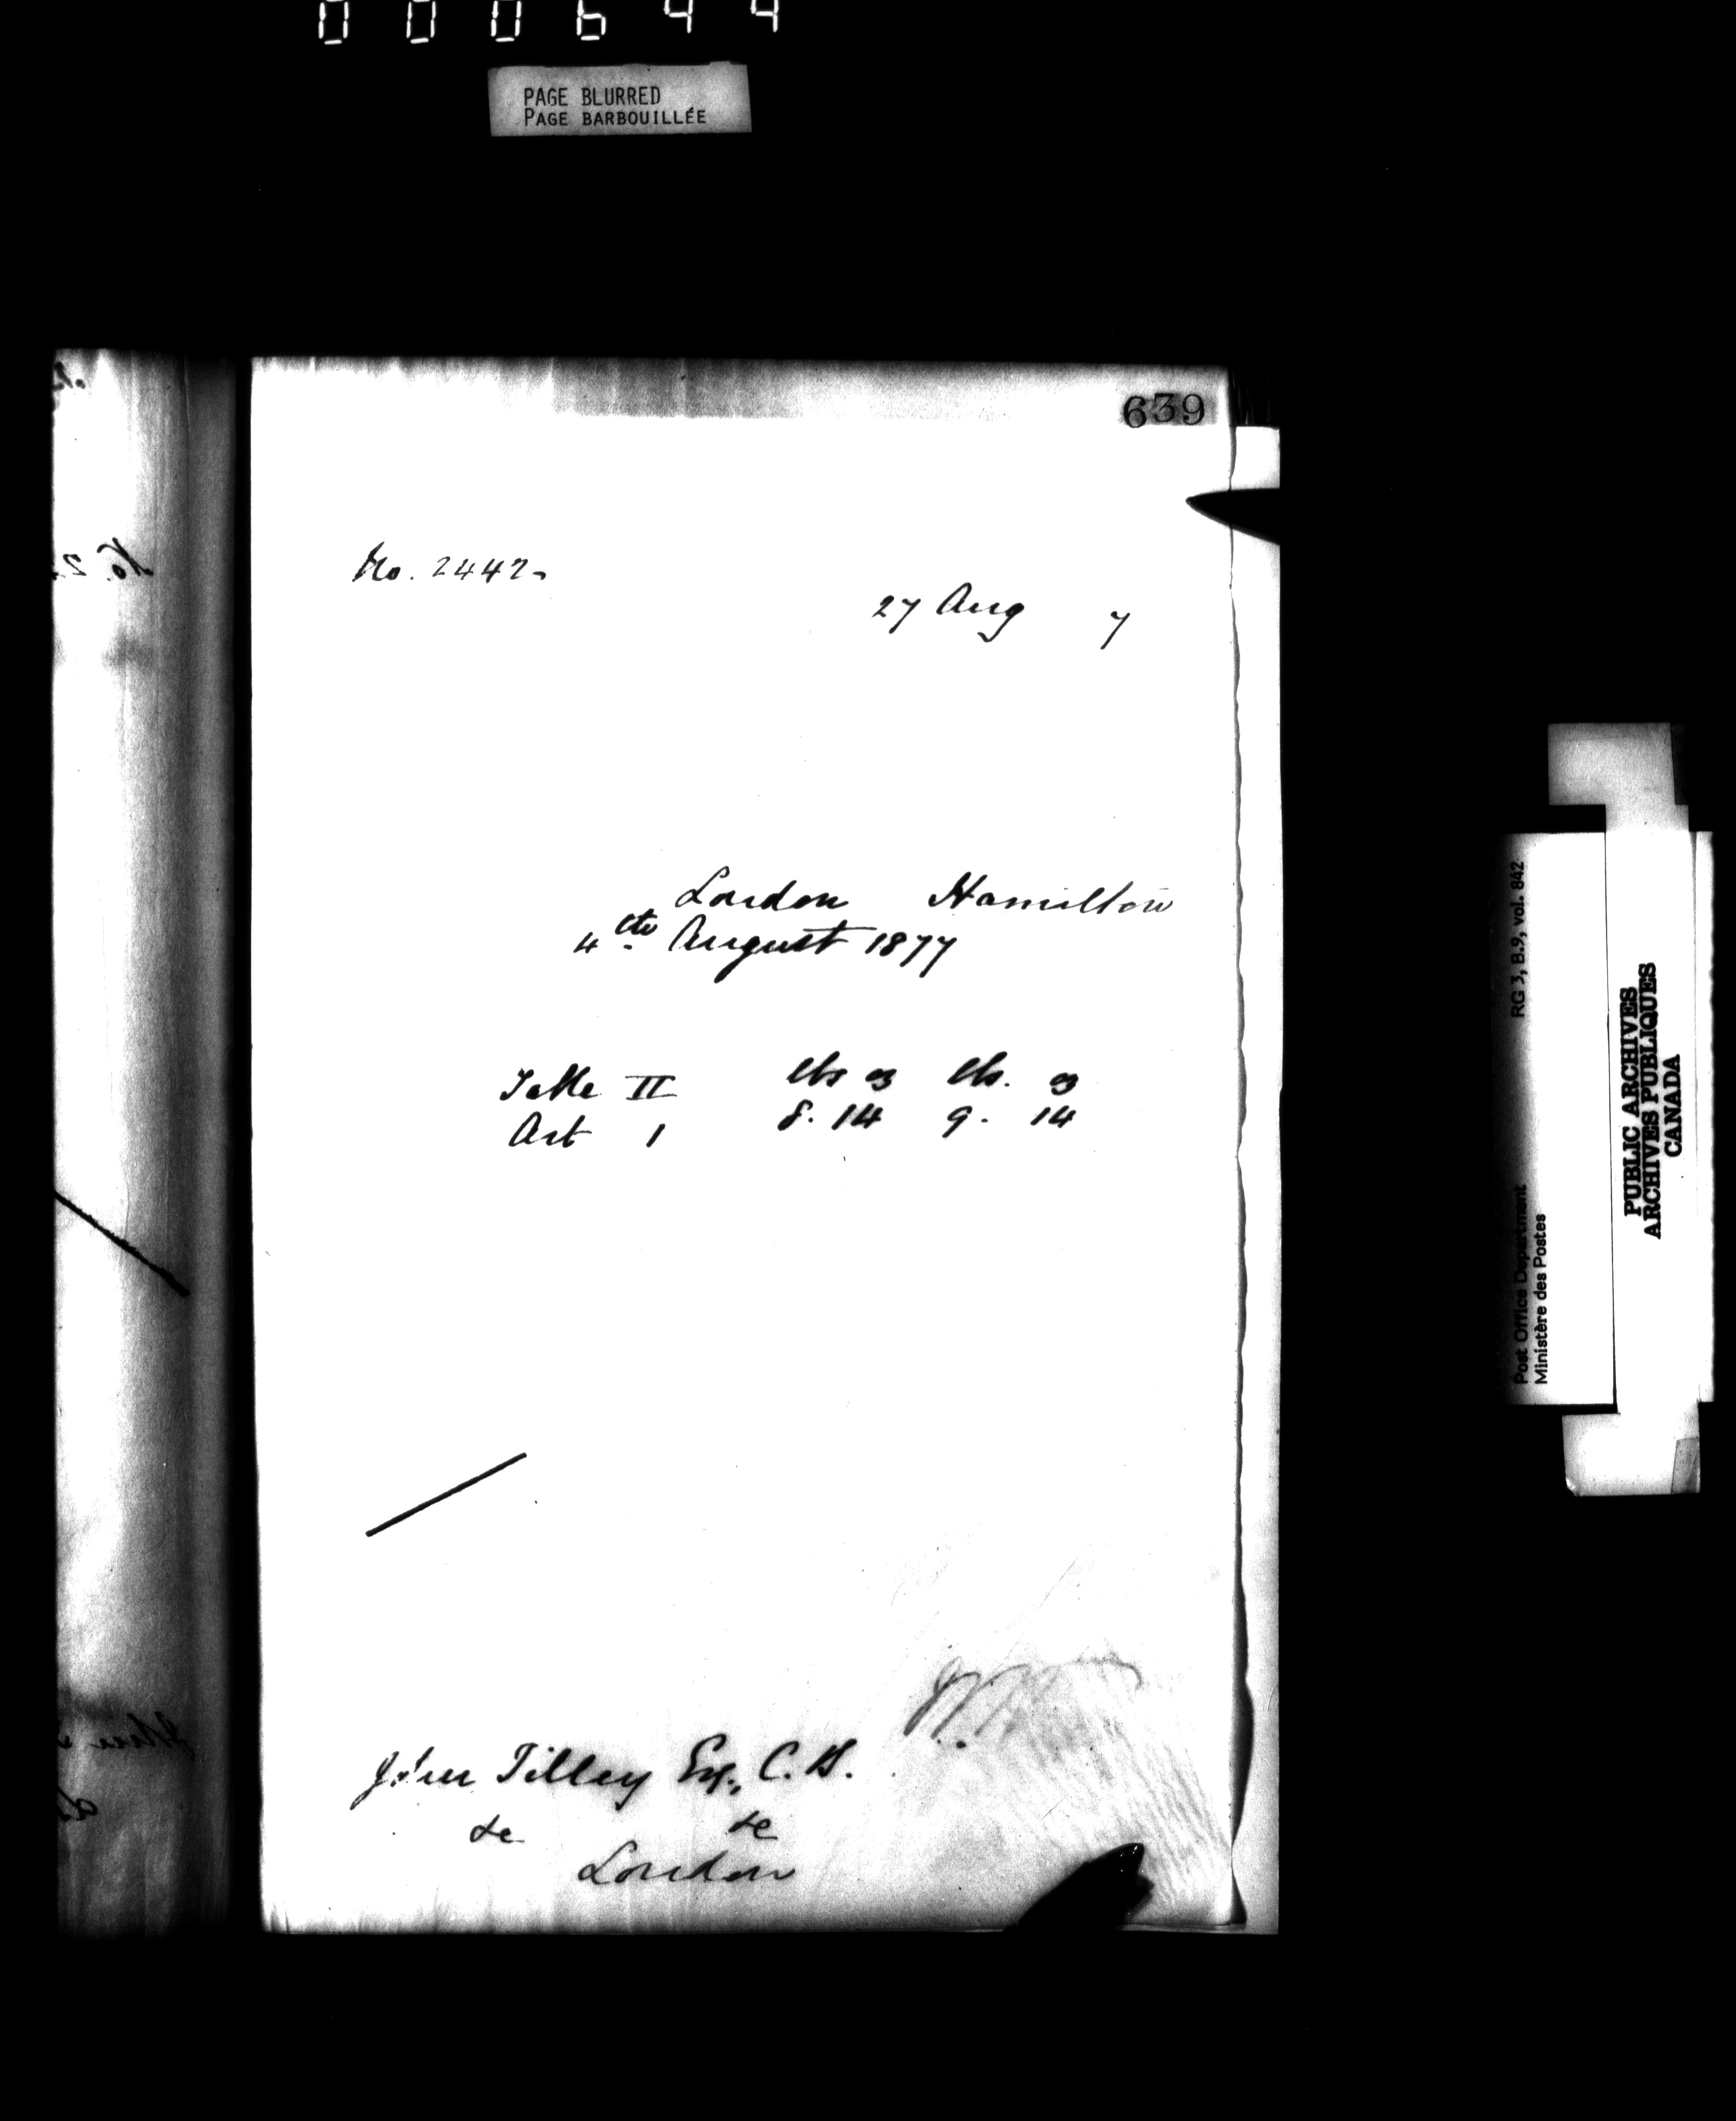 000644
PAGE BLURRED
PAGE BARBOUILLÉE
639
No. 2442
27 Aug 7
London Hamilton
4th August 1877
Table II lbs oz lbs. oz
Art 1 8. 14 9. 14
John Tilley Esq, C.B.
&c &c
London
RG 3, B.9, vol. 842
Post Office Department
Ministère des Postes
PUBLIC ARCHIVES
ARCHIVES PUBLIQUES
CANADA